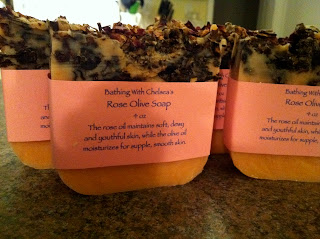 Bathing With Chelsea's
Rose Olive Soap
4 oz
The rose oil maintains soft, dewy
and youthful skin, while the olive oil
moisturizes for supple, smooth skin.
Bathing With Chelsea's
Rose Olive
4 oz
The rose oil maintains
and youthful skin, while
moisturizes for supple,